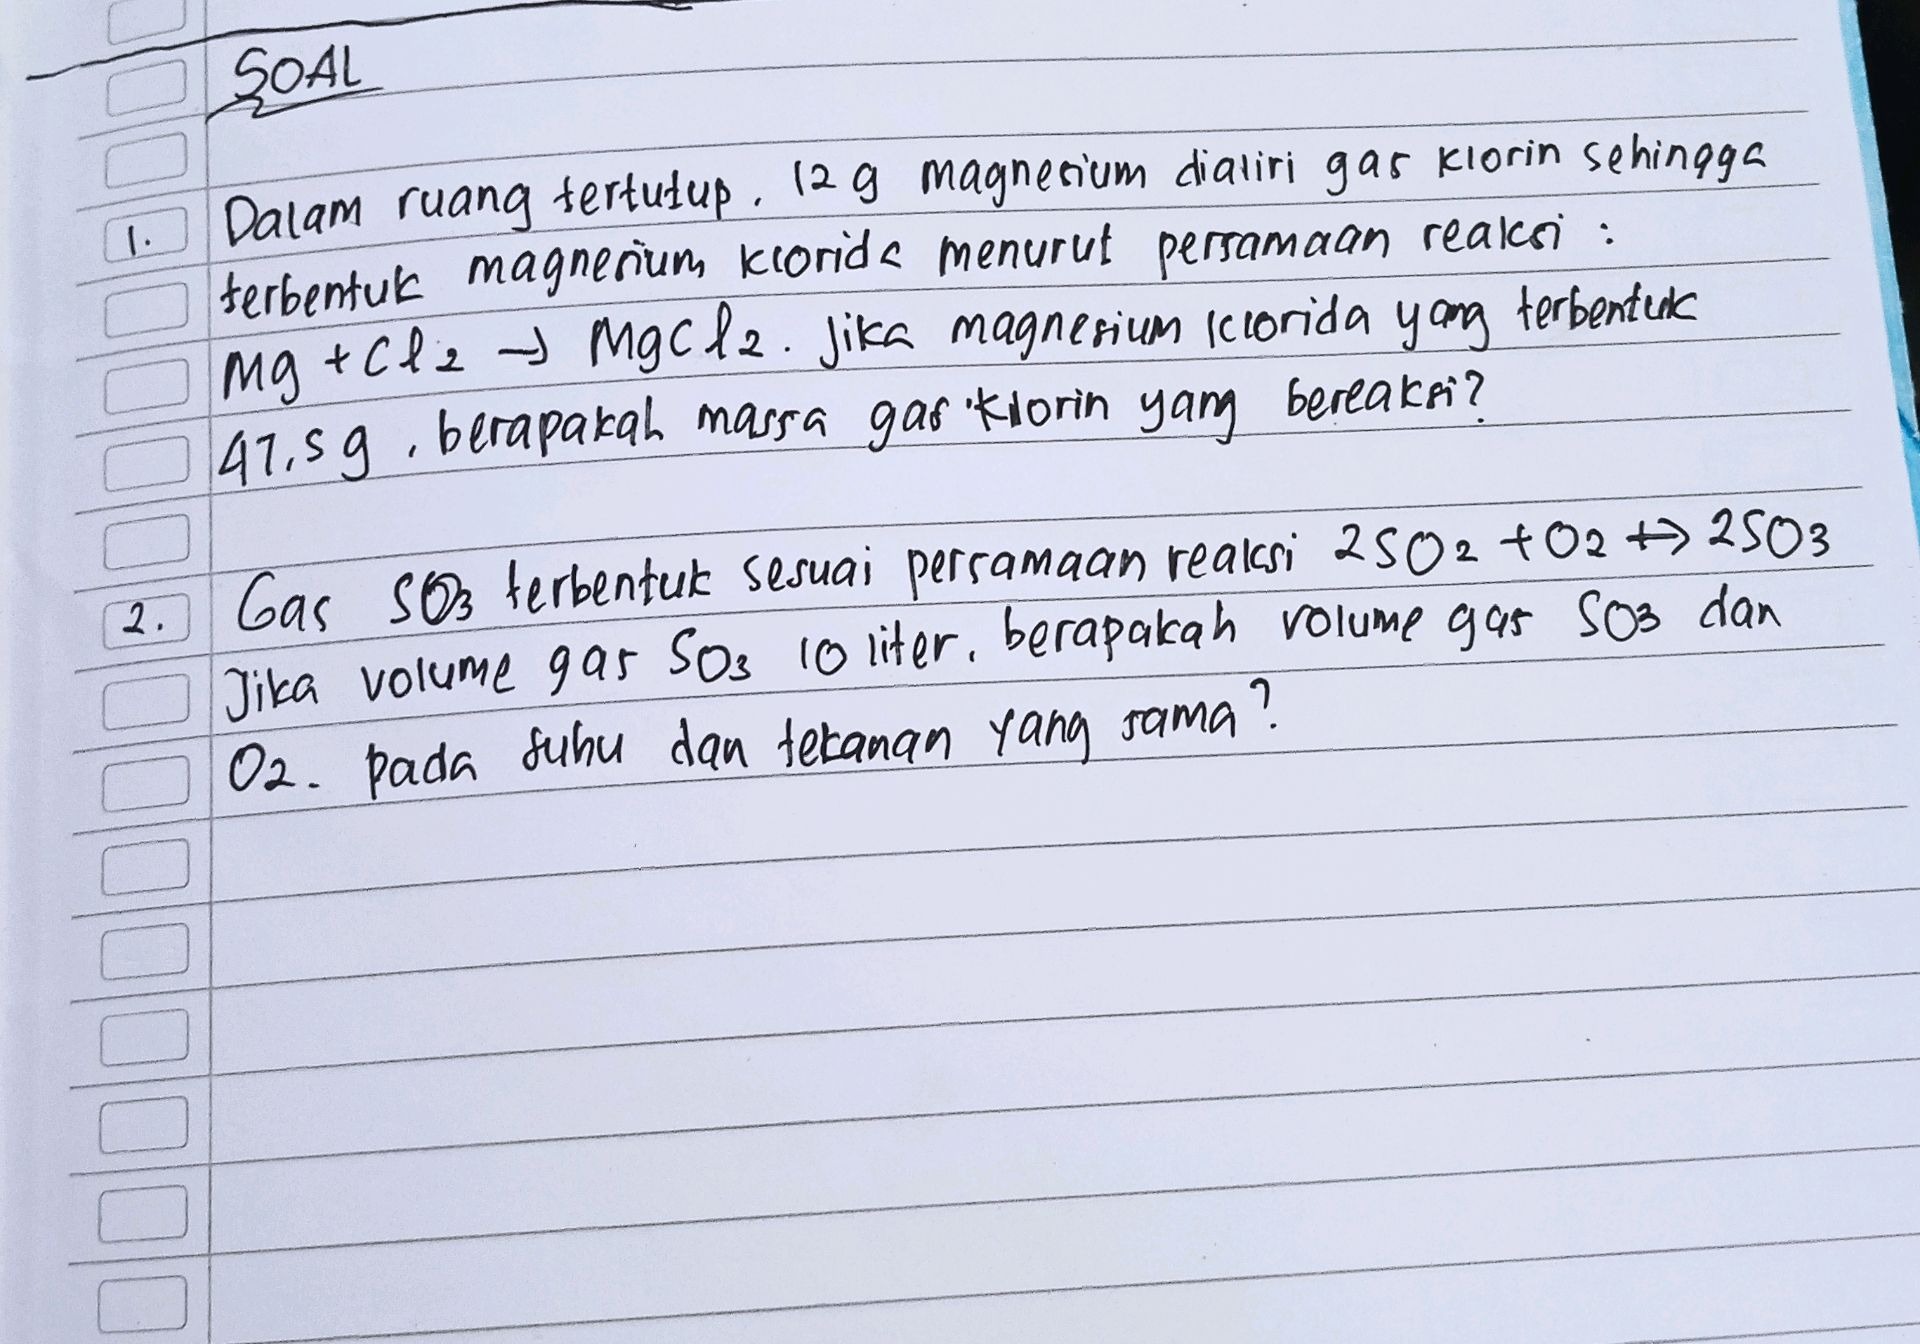 SOAL
1. Dalam ruang tertutup, 12 g magnesium dialiri gas klorin sehingga
terbentuk magnesium klorida menurut persamaan reaksi :
Mg + Cl2 → MgCl2. Jika magnesium klorida yang terbentuk
47,5 g, berapakah massa gas klorin yang bereaksi?
2. Gas SO3 terbentuk sesuai persamaan reaksi 2SO2 + O2 ↔ 2SO3
Jika volume gas SO3 10 liter, berapakah volume gas SO3 dan
O2. pada suhu dan tekanan yang sama?